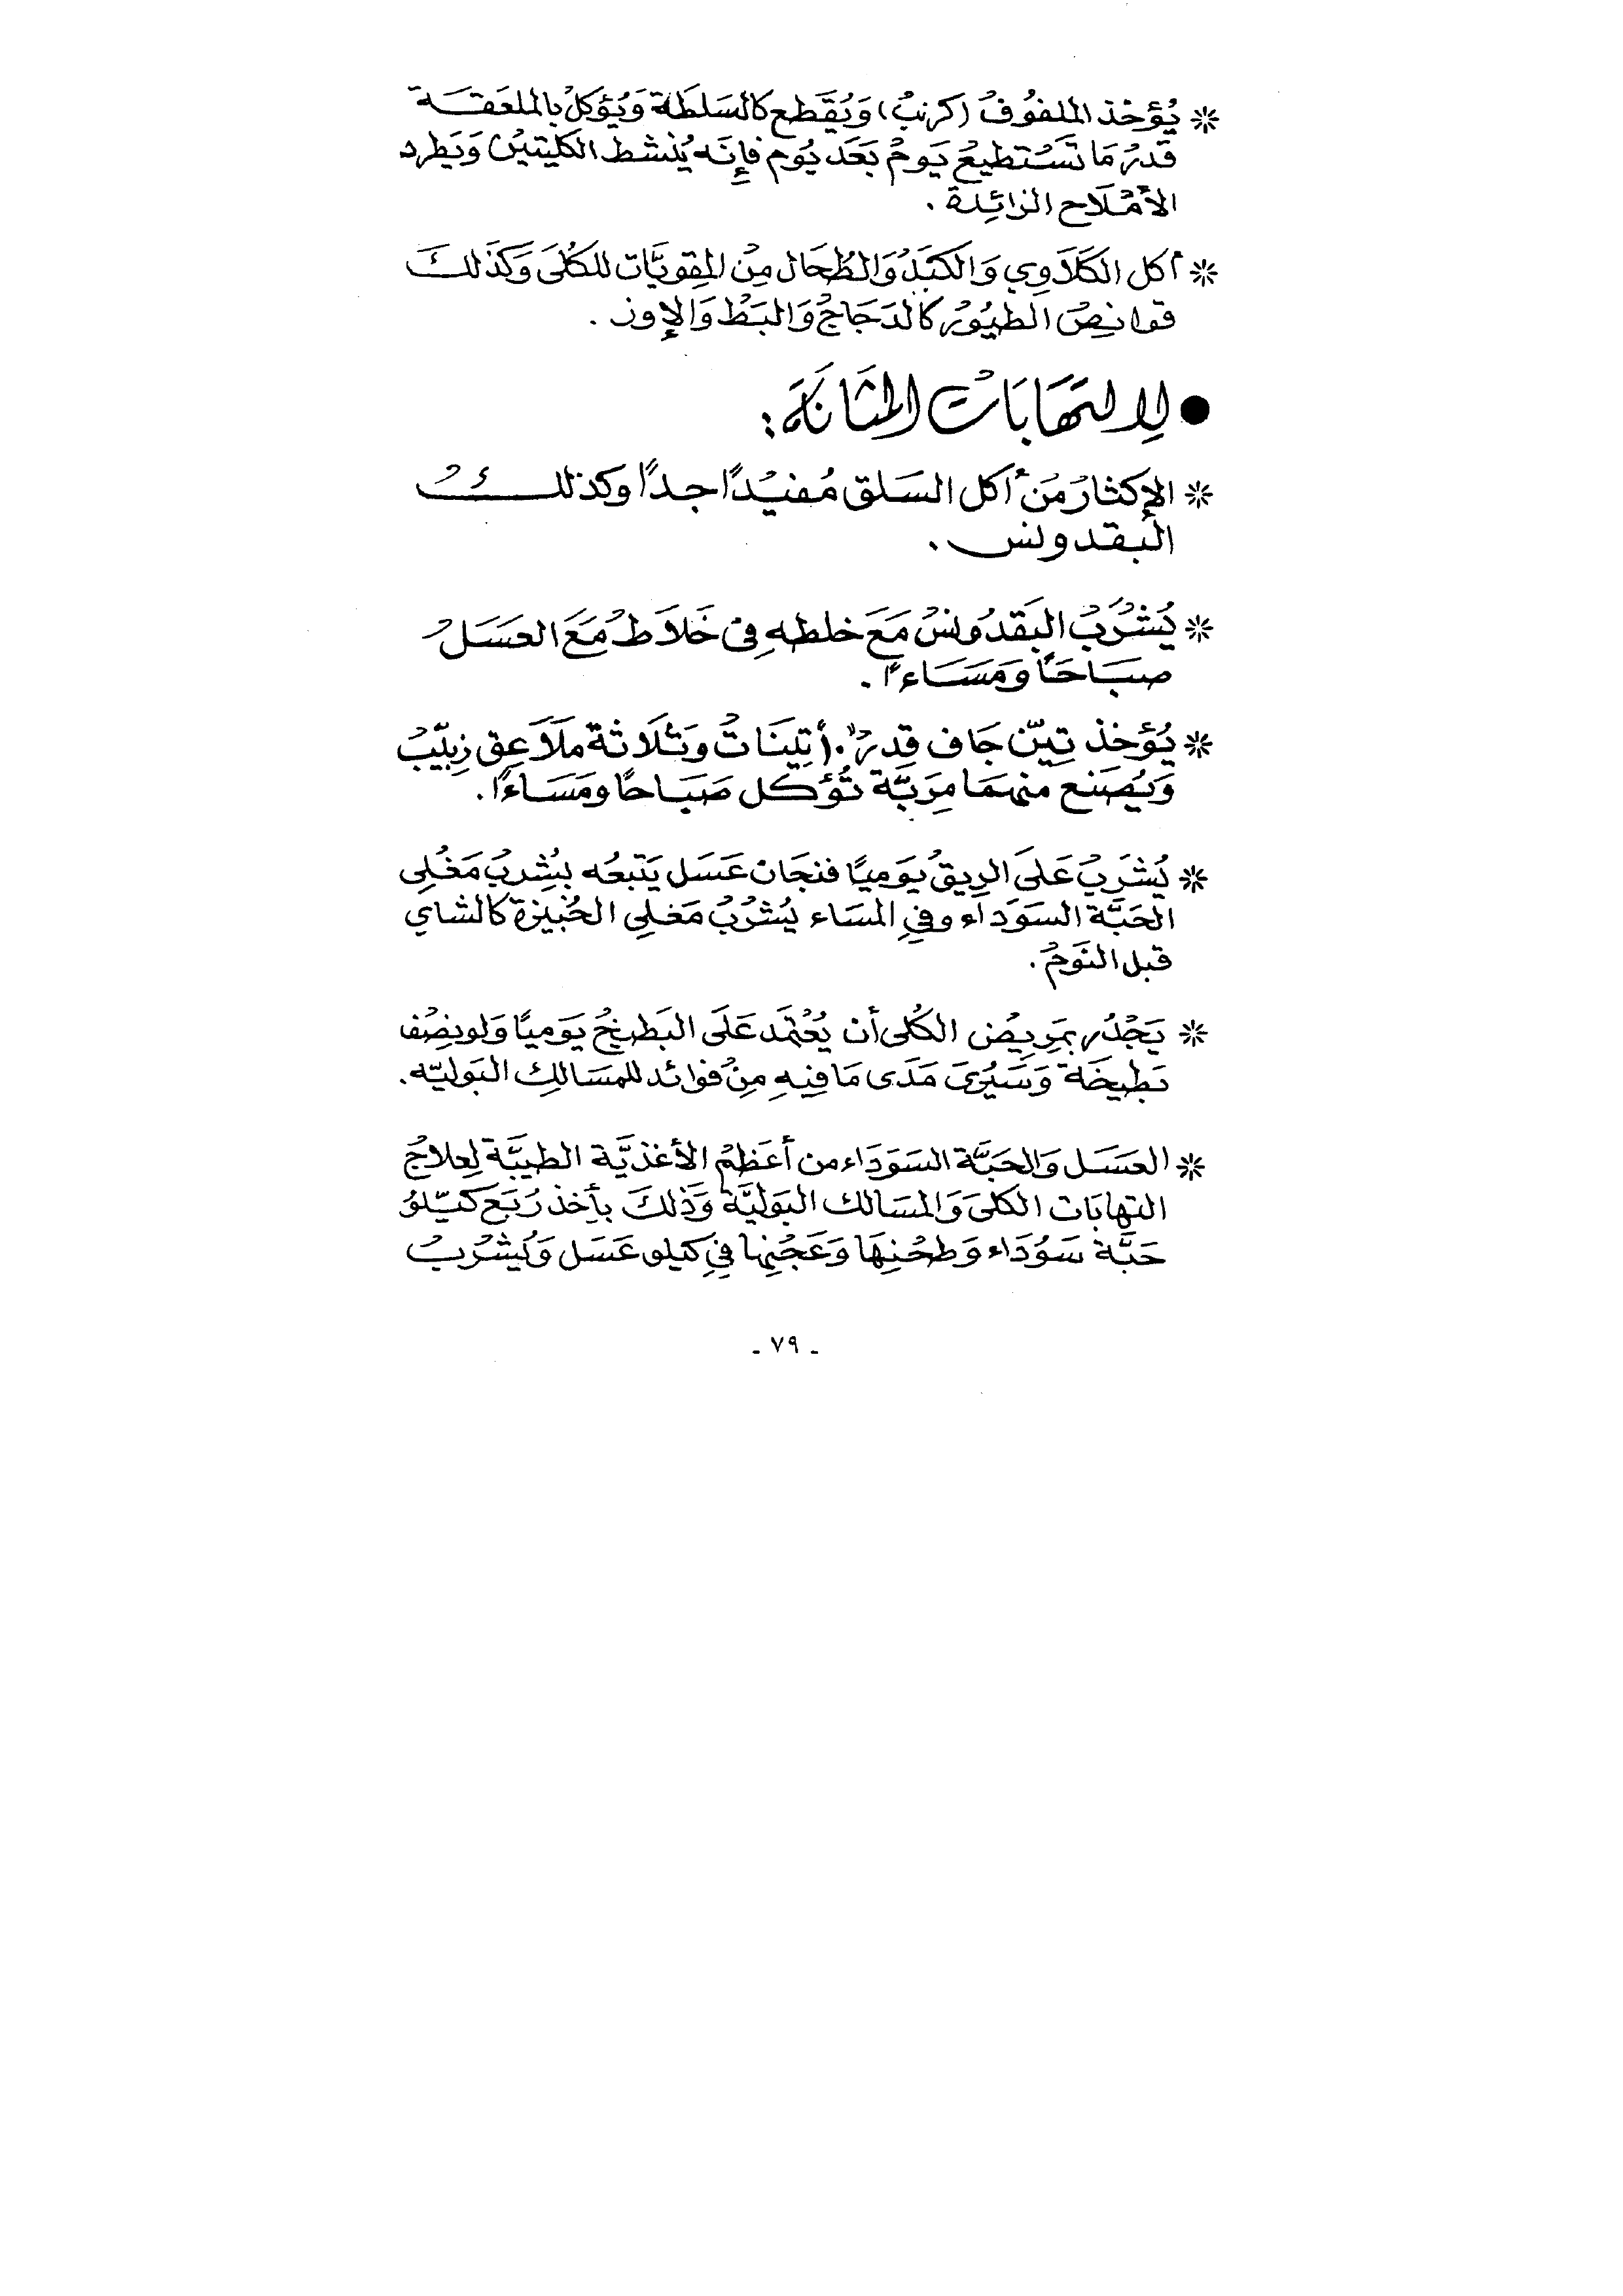 * يُؤخذ الملفوف (كرنب) وَيُقَطع كالسَلطَة وَيُؤكل بالملعَقَة
قَدر مَا تَسْتطيعْ يَومْ بَعَد يُوم فإِنَه يُنشط الكليتينْ وَيَطرد
الأمْلَاح الزائِدة .
* أكل الكَلَاوِي وَالكَبَدْ وَالطُحَال مِنْ المقويَّات للكُلَى وَكَذلكَ
قوانِصْ الطيُورْ كالدَجَاجْ وَالبَطْ وَالإوز .
● لِالتهَابَاتْ المثَانَة :
* الإكثارْ مَنْ أكل السَلق مُفيْدًا جدًا وكذلكْ
البقدونس .
* يُشْرَبْ البَقدُونسْ مَعَ خلطهِ فِى خَلاَطْ مَعَ العسَلْ
صبَاحَاً وَمَسَاءً .
* يُؤخذ تِيّن جَاف قدرْ ١٠ تيَنَاتْ وَثلَاثة ملَاعِق زِبيّبْ
وَيُصَنع منهمَا مِرَبَّة تُؤكل صَبَاحًا ومَسَاءًا .
* يُشرَبْ عَلىَ الرِيقْ يَوَميًا فنجَان عَسَل يَتبعُه بشِربْ مَغْلِى
الحَبَّة السَوَدَاء وفىِ المسَاء يُشْرُبْ مَغلِى الخُبيزة كالشاي
قبل النَومْ .
* يَجْدُر بمَرِيضْ الكُلى أن يُعْتمَد عَلَى البَطيخْ يَوَميًا وَلو نِصْف
بَطيخَة وَسَيُرىَ مَدَى مَا فيهِ مِنْ فوائد للمسَالِك البَوليّه .
* العسَل وَالحَبَّة السَوَدَاء من أعَظمْ الأغذيَّة الطيبَّة لِعلاجْ
التهابَات الكلىَ وَالمسَالك البَوليَّة وَذلكَ بأخذ رُبَع كيّلوْ
حَبَّة سَوُدَاء وَطحْنِهَا وَعَجْنِها فىِ كيلو عَسَل وَيُشْرُبْ
- ٧٩ -